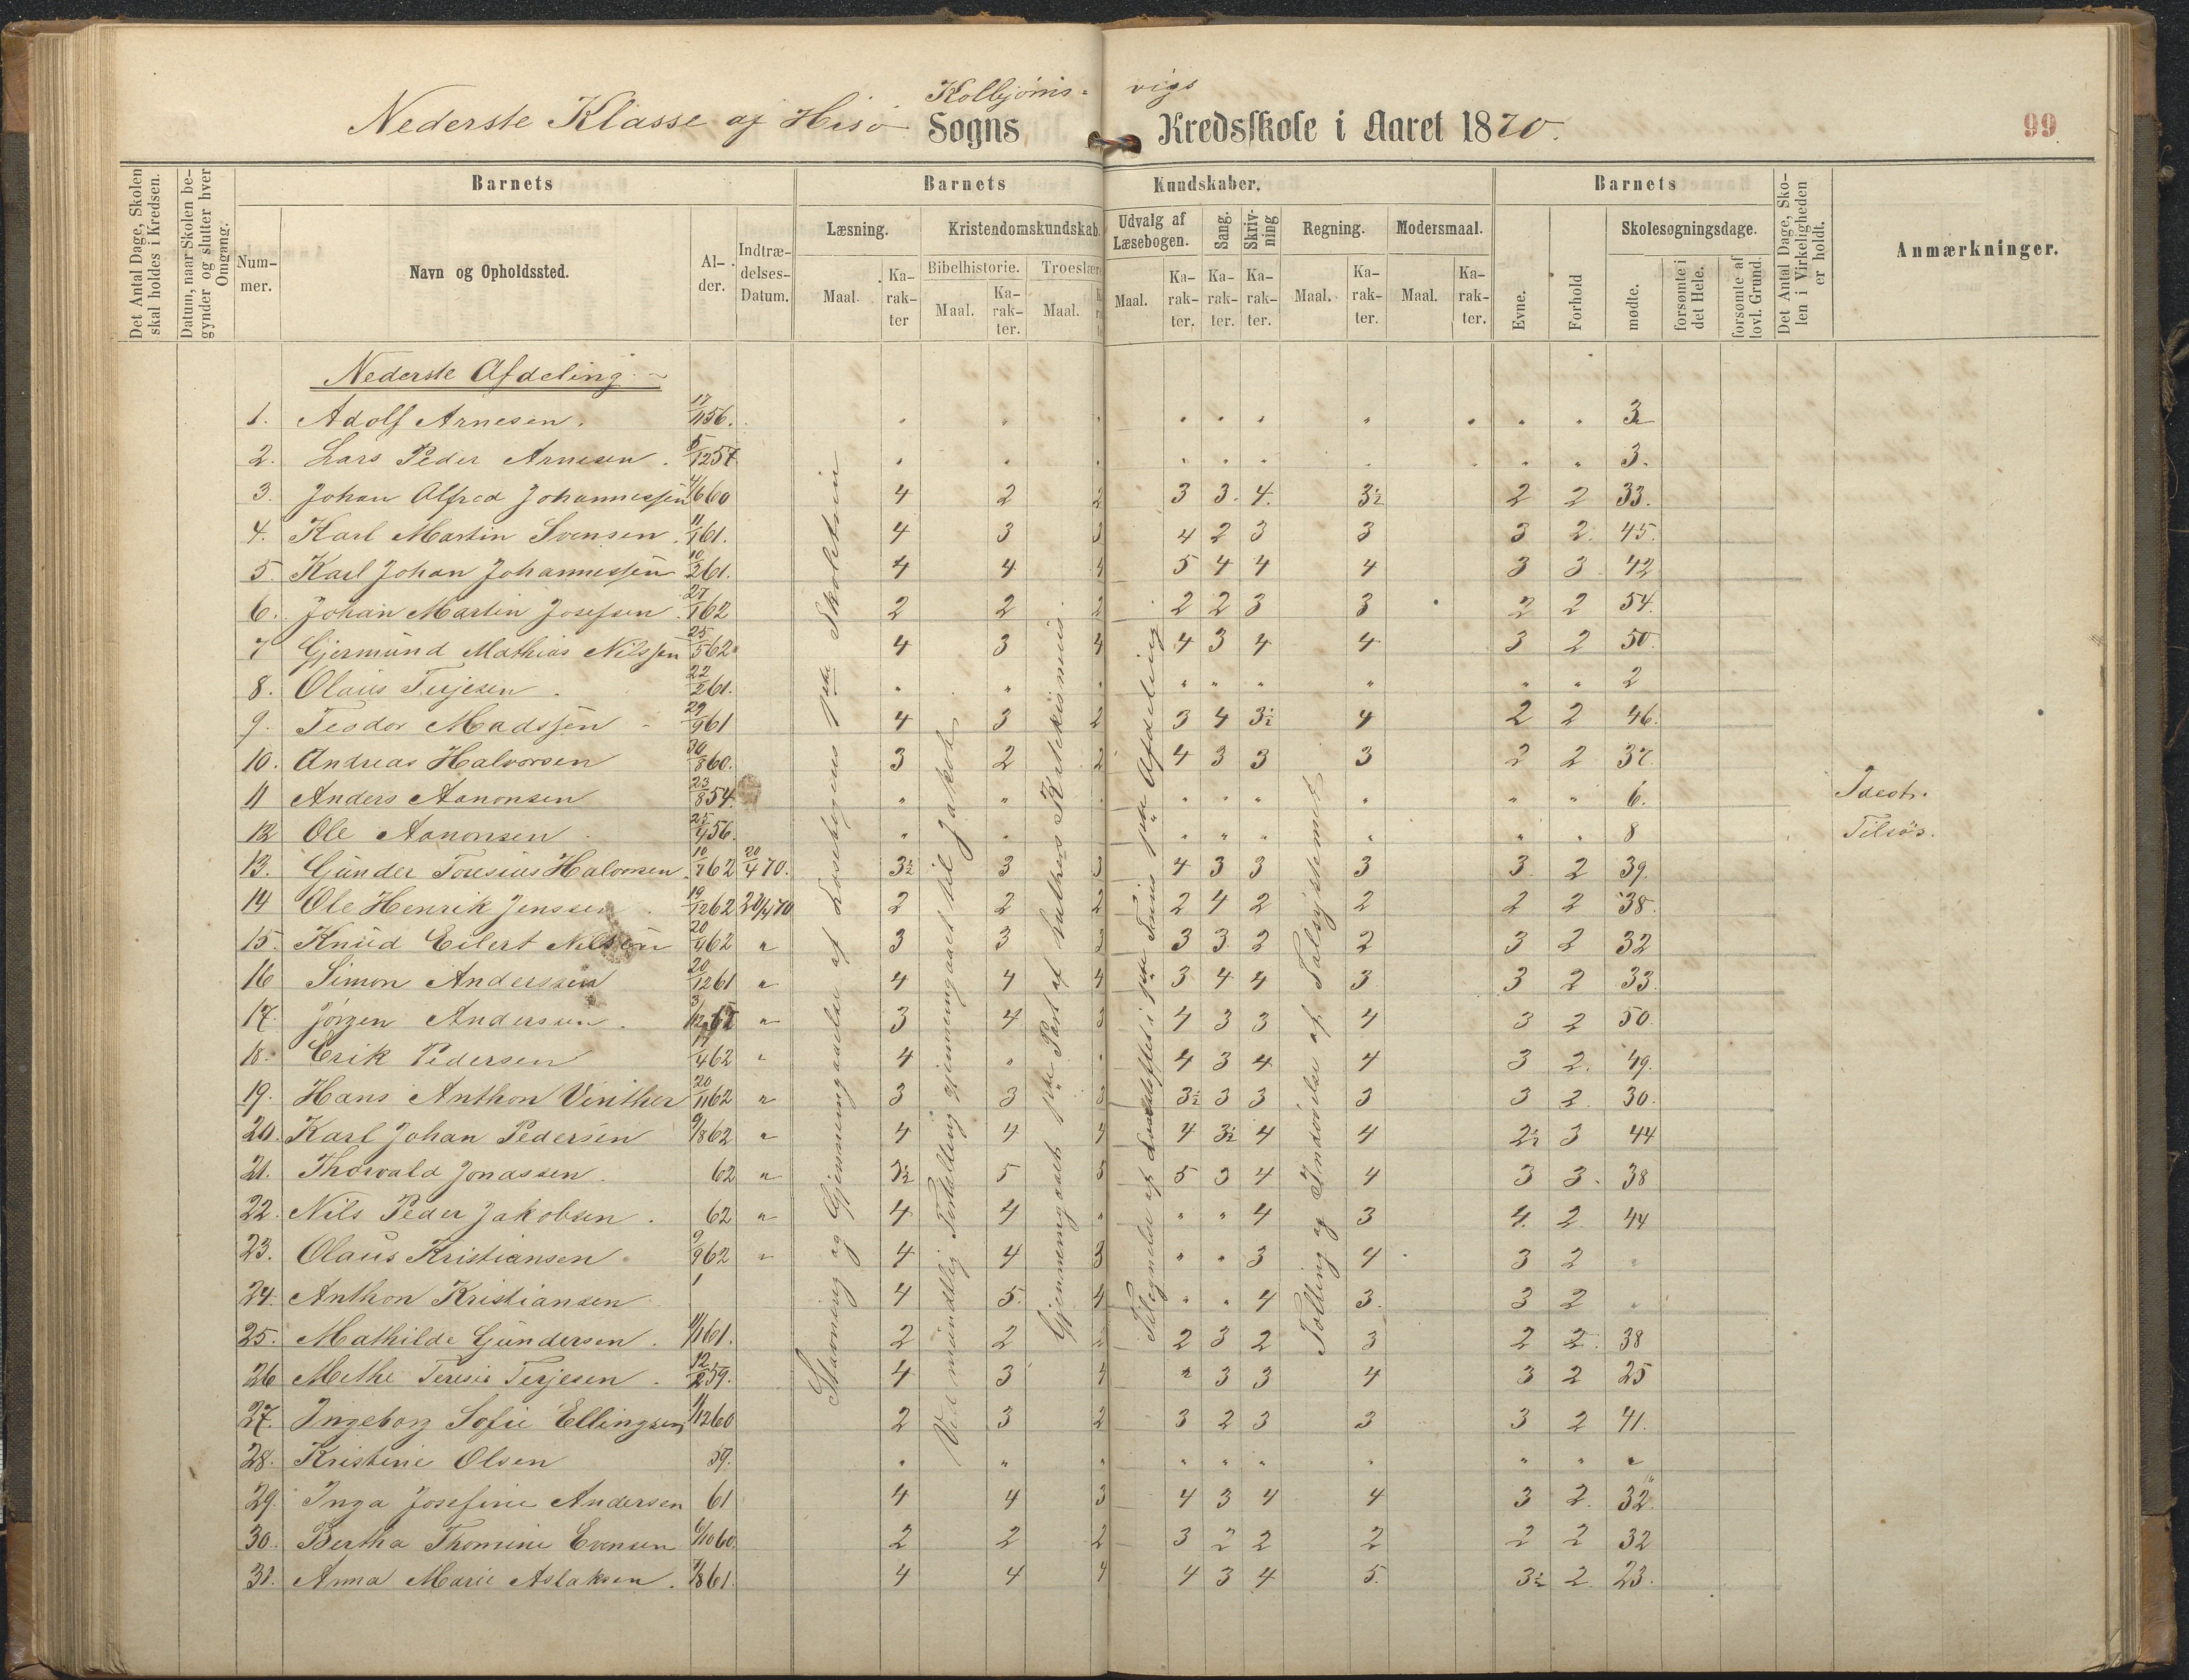 Kolbjörns- vigs
Nederste Klasse af Hisö Sogns Kredsskole i Aaret 1870.
99
Det Antal Dage, Skolen skal holdes i Kredsen.
Datum, naar Skolen begynder og slutter hver Omgang.
Barnets
Barnets Kundskaber.
Barnets
Det Antal Dage, Skolen i Virkeligheden er holdt.
Anmærkninger.
Nummer.
Navn og Opholdssted.
Alder.
Indtrædelses-Datum.
Læsning.
Kristendomskundskab.
Udvalg af Læsebogen.
Sang.
Skrivning
Regning.
Modersmaal.
Evne.
Forhold
Skolesøgningsdage.
Bibelhistorie.
Troeslære
Maal.
Karakter
Maal.
Karakter.
Maal.
Maal.
Karakter.
Karakter.
Karakter.
Maal.
Karakter.
Maal.
Karakter.
mødte.
forsømte i det Hele.
forsømte af lovl. Grund.
Nederste Afdeling
1. Adolf Arnesen. 17/11 56. " " " " " " " " " 3
2. Lars Peder Arnesen. 5/12 57 " " " " " " " " " 3.
3. Johan Alfred Johannessen 4/6 60 4 2 2 3 3. 4. 3½ 2 2 33.
4. Karl Martin Svensen. 11/1 61. 4 3 3 4 2 3 3 3 2. 45.
5. Karl Johan Johannessen 10/2 61. 4 4 4 5 4 4 4 3 3. 42
6. Johan Martin Josefsen. 27/1 62 2 2 2 2 2 3 3 2 2 54.
7 Gjermund Mathias Nilssen 25/5 62 4 3 4 4 3 4 4 3 2 50.
8. Olaus Terjesen. 22/2 61. " " " " " " " " " 2
9. Teodor Madssen 29/9 61 4 3 2 3 4 3½ 4 2 2 46.
10. Andreas Halvorsen 30/8 60. 3 2 2 4 3 3 3 2 2 37.
11 Anders Aanonsen 23/8 54. " " " " " " " " " 6. Ideot.
12 Ole Aanonsen 25/4 56. " " " " " " " " " 8 Tilsös.
13. Gunder Toresius Halvorsen. 10/7 62 20/4 70. 3½ 3 3 4 3 3 3 3. 2 39.
14 Ole Henrik Jenssen. 19/12 62 20/4 70 2 2 2 2 4 2 2 2 2 38.
15. Knud Eilert Nilssen 20/4 62 " 3 3 3 3 3. 2 2 3 2 32
16 Simon Anderssen 20/12 61 " 4 4 4 3 4 4 3 3 2 33.
17. Jörgen Anderssen. " 3 4 3 4 3 3 4 3 2 50.
18. Erik Pedersen 17/4 62 " 4 " " 4 3 4 4 3 2. 49.
19. Hans Anthon Vinther 20/11 62 " 3 3 3 3½ 3 3 3 3 2. 30.
20. Karl Johan Pedersen 9/8 62 " 4 4 4 4 3½ 4 4 2½ 3 44
21. Thorvald Jonassen. 62 " 3½ 5 5 5 3 4 4 3 3. 38
22. Nils Peder Jakobsen. 62 " 4 4 " " " 4 3 4. 2. 44
23. Olaus Kristiansen 9/9 62 " 4 4 3 " " 3 4 3 2 "
24. Anthon Kristiansen 4 5. 4 " " 4 3. 3 2 "
25. Mathilde Gundersen. 11/1 61. 2 2 2 2 3 2 3 2 2. 38
26 Methe Teresie Terjesen. 12/2 59. 4 3 4 " 3 3 4 3 2 25
27. Ingeborg Sofie Ellingsen 1/12 60 2 3 2 3 2 3 3 3 2 41.
28. Kristine Olsen 59. " " " " " " " " " "
29. Inga Josefine Andersen 61 4 4 3 4 3 4 4 3 2. 32.
30. Bertha Thomine Evensen 6/10 60. 2 2 2 3 2 2 2 2 2 32
31. Anna Marie Aslaksen. 7/8 61. 4 4 4 4 3 4 5. 3½ 2 23.
Stavning og Gjennemgaaelse af Læsebogens 1ste Skoletrin
Ved mundtlig Fortælling gjennemgaaet til Jakob.
Gjennemgaaet 1ste Part af Luthers Katekismus.
Tilegnelse af Livsstoffet i 1ste Trins 1ste Afdeling
Tolkning og Indøvelse af Talsystemet